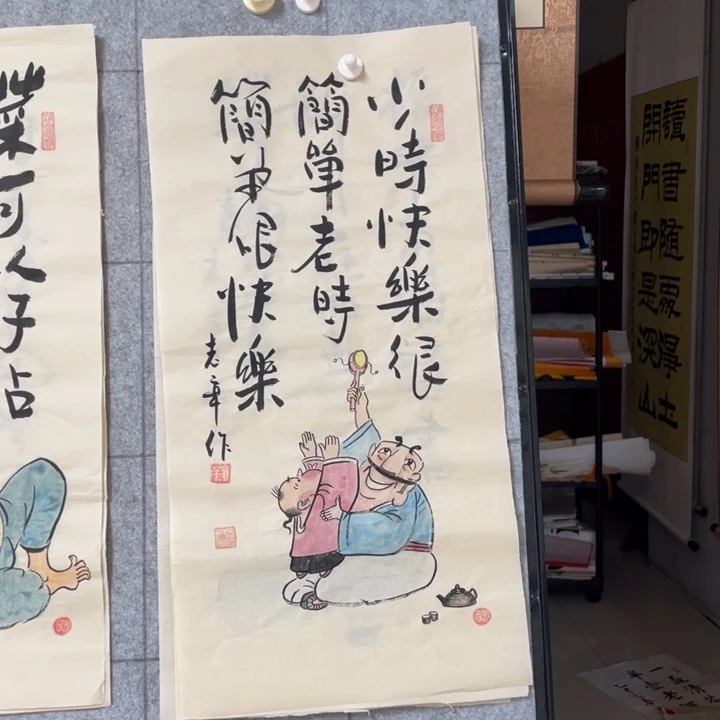 菜可人子占
少時快樂很
簡單老時
簡单很快樂
志章作
讀書隨處淨土
閉門即是深山